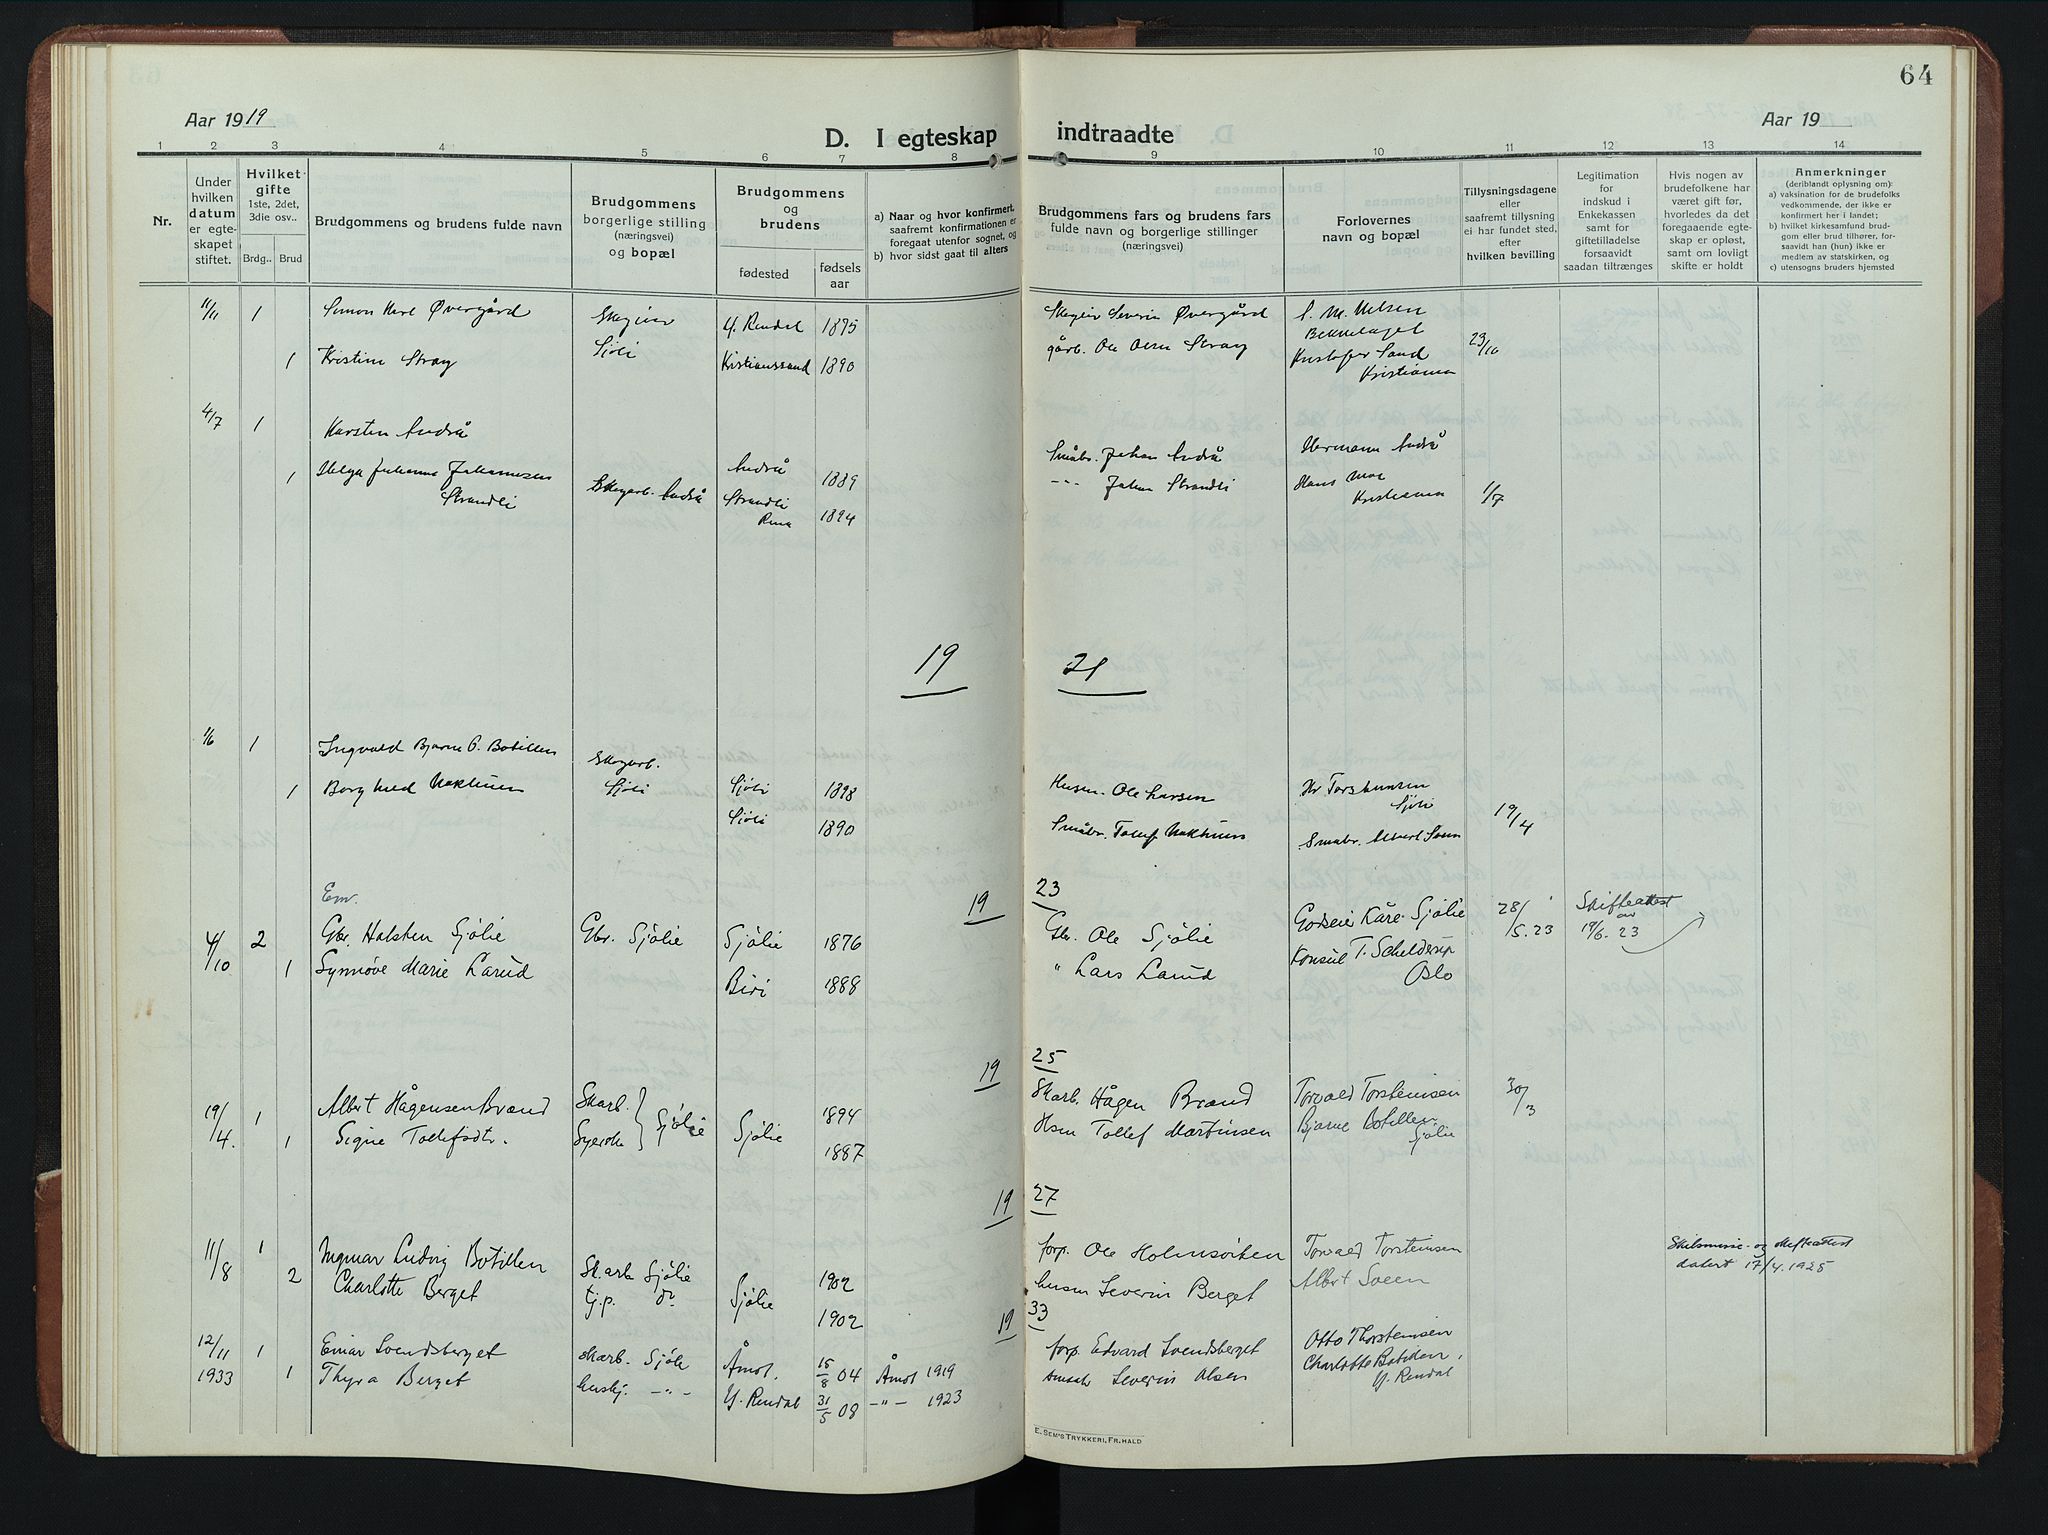 64
Aar 1919
D. I egteskap indtraadte
Aar 19
1 2 3 4 5 6 7 8 9 10 11 12 13 14
Nr.
Under hvilken datum er egteskapet stiftet.
Hvilket gifte 1ste, 2det, 3die osv..
Brdg..
Brud
Brudgommens og brudens fulde navn
Brudgommens borgerlige stilling (næringsvei) og bopæl
Brudgommens og brudens
fødested
fødsels aar
a) Naar og hvor konfirmert,
saafremt konfirmationen er
foregaat utenfor sognet, og
b) hvor sidst gaat til alters
Brudgommens fars og brudens fars
fulde navn og borgerlige stillinger
(næringsvei)
Forlovernes
navn og bopæl
Tillysningsdagene
eller
saafremt tillysning
ei har fundet sted,
efter
hvilken bevilling
Legitimation
for
indskud i
Enkekassen
samt for
giftetilladelse
forsaavidt
saadan tiltrænges
Hvis nogen av
brudefolkene har
været gift før,
hvorledes da det
foregaaende egte-
skap er opløst,
samt om lovligt
skifte er holdt
Anmerkninger
(deriblandt oplysning om):
a) vaksination for de brudefolks
vedkommende, der ikke er
konfirmert her i landet;
b) hvilket kirkesamfund brud-
gom eller brud tilhører, for-
saavidt han (hun) ikke er
medlem av statskirken, og
c) utensogns bruders hjemsted
11/11 1 Simon Karl Øvergård Skogeier Y. Rendal 1895 Skogeier Severin Øvergård S. M. Nilsen
Bekkelaget
1 Kristine Stray Sjöli Kristianssand 1890 gårb. Ole Olsen Stray Kristofer Sand 23/10
Kristiania
4/7 1 Karsten Andrå
Andrå 1889 Småbr. Johan Andrå Hermann Andrå
1 Helga Johanna Johannesen Skogarb. Andrå Strandli Johan Strandli Hans Moe
Strandli Rena 1894 Kristiania 1/7
19 21
1/6 1 Ingvald Bjarne O. Botillen Skogarb.
1 Borghild Nakhuen Sjöli Sjöli 1898 Husm. Ole Larsen Torsteinsen
Sjöli
Sjöli 1890 Småbr. Tollef Nakhuen Småbr. Albert Soen 19/4
19 23
Em.
4/10 2 Gbr. Halsten Sjölie Gbr. Sjölie Sjölie 1876 Gbr. Ole Sjölie Godseier Kåre Sjölie 28/5.23 Skifteattest
av
19/6.23
1 Synnöve Marie Larud Biri 1888 " Lars Larud Konsul T. Schelderup
Oslo
19 25
19/4. 1 Albert Hågensen Brænd Skarb. Sjölie 1894 Skarb. Hågen Brænd Torvald Torsteinsen 30/3
1 Signe Tollefsdtr. Syerske Sjölie 1887 Hsm Tollef Martinsen Bjarne Botillen.
Sjölie
19 27
11/8 1 Ingmar Ludvig Botillen Skarb. Sjölie 1902 forp. Ole Holmsöiten Torvald Torsteinsen Skilsmisse- og skifteattest
datert 17/4.1925
2 Charlotte Berget tj.p. do Sjölie 1902 husm Severin Berget Albert Soeen
19 33
12/11 1 Einar Svendsberget skarb. Sjöli Åmot. 15/8 04 Åmot 1919 forp. Edvard Svendsberget Otto Thorsteinsen
1933 1 Thyra Berget hushj. -"- Y. Rendal 31/5 08 -"- 1923 Severin Olsen Charlotte Botilen,
Y. Rendal
E. SEM'S TRYKKERI, FR.HALD